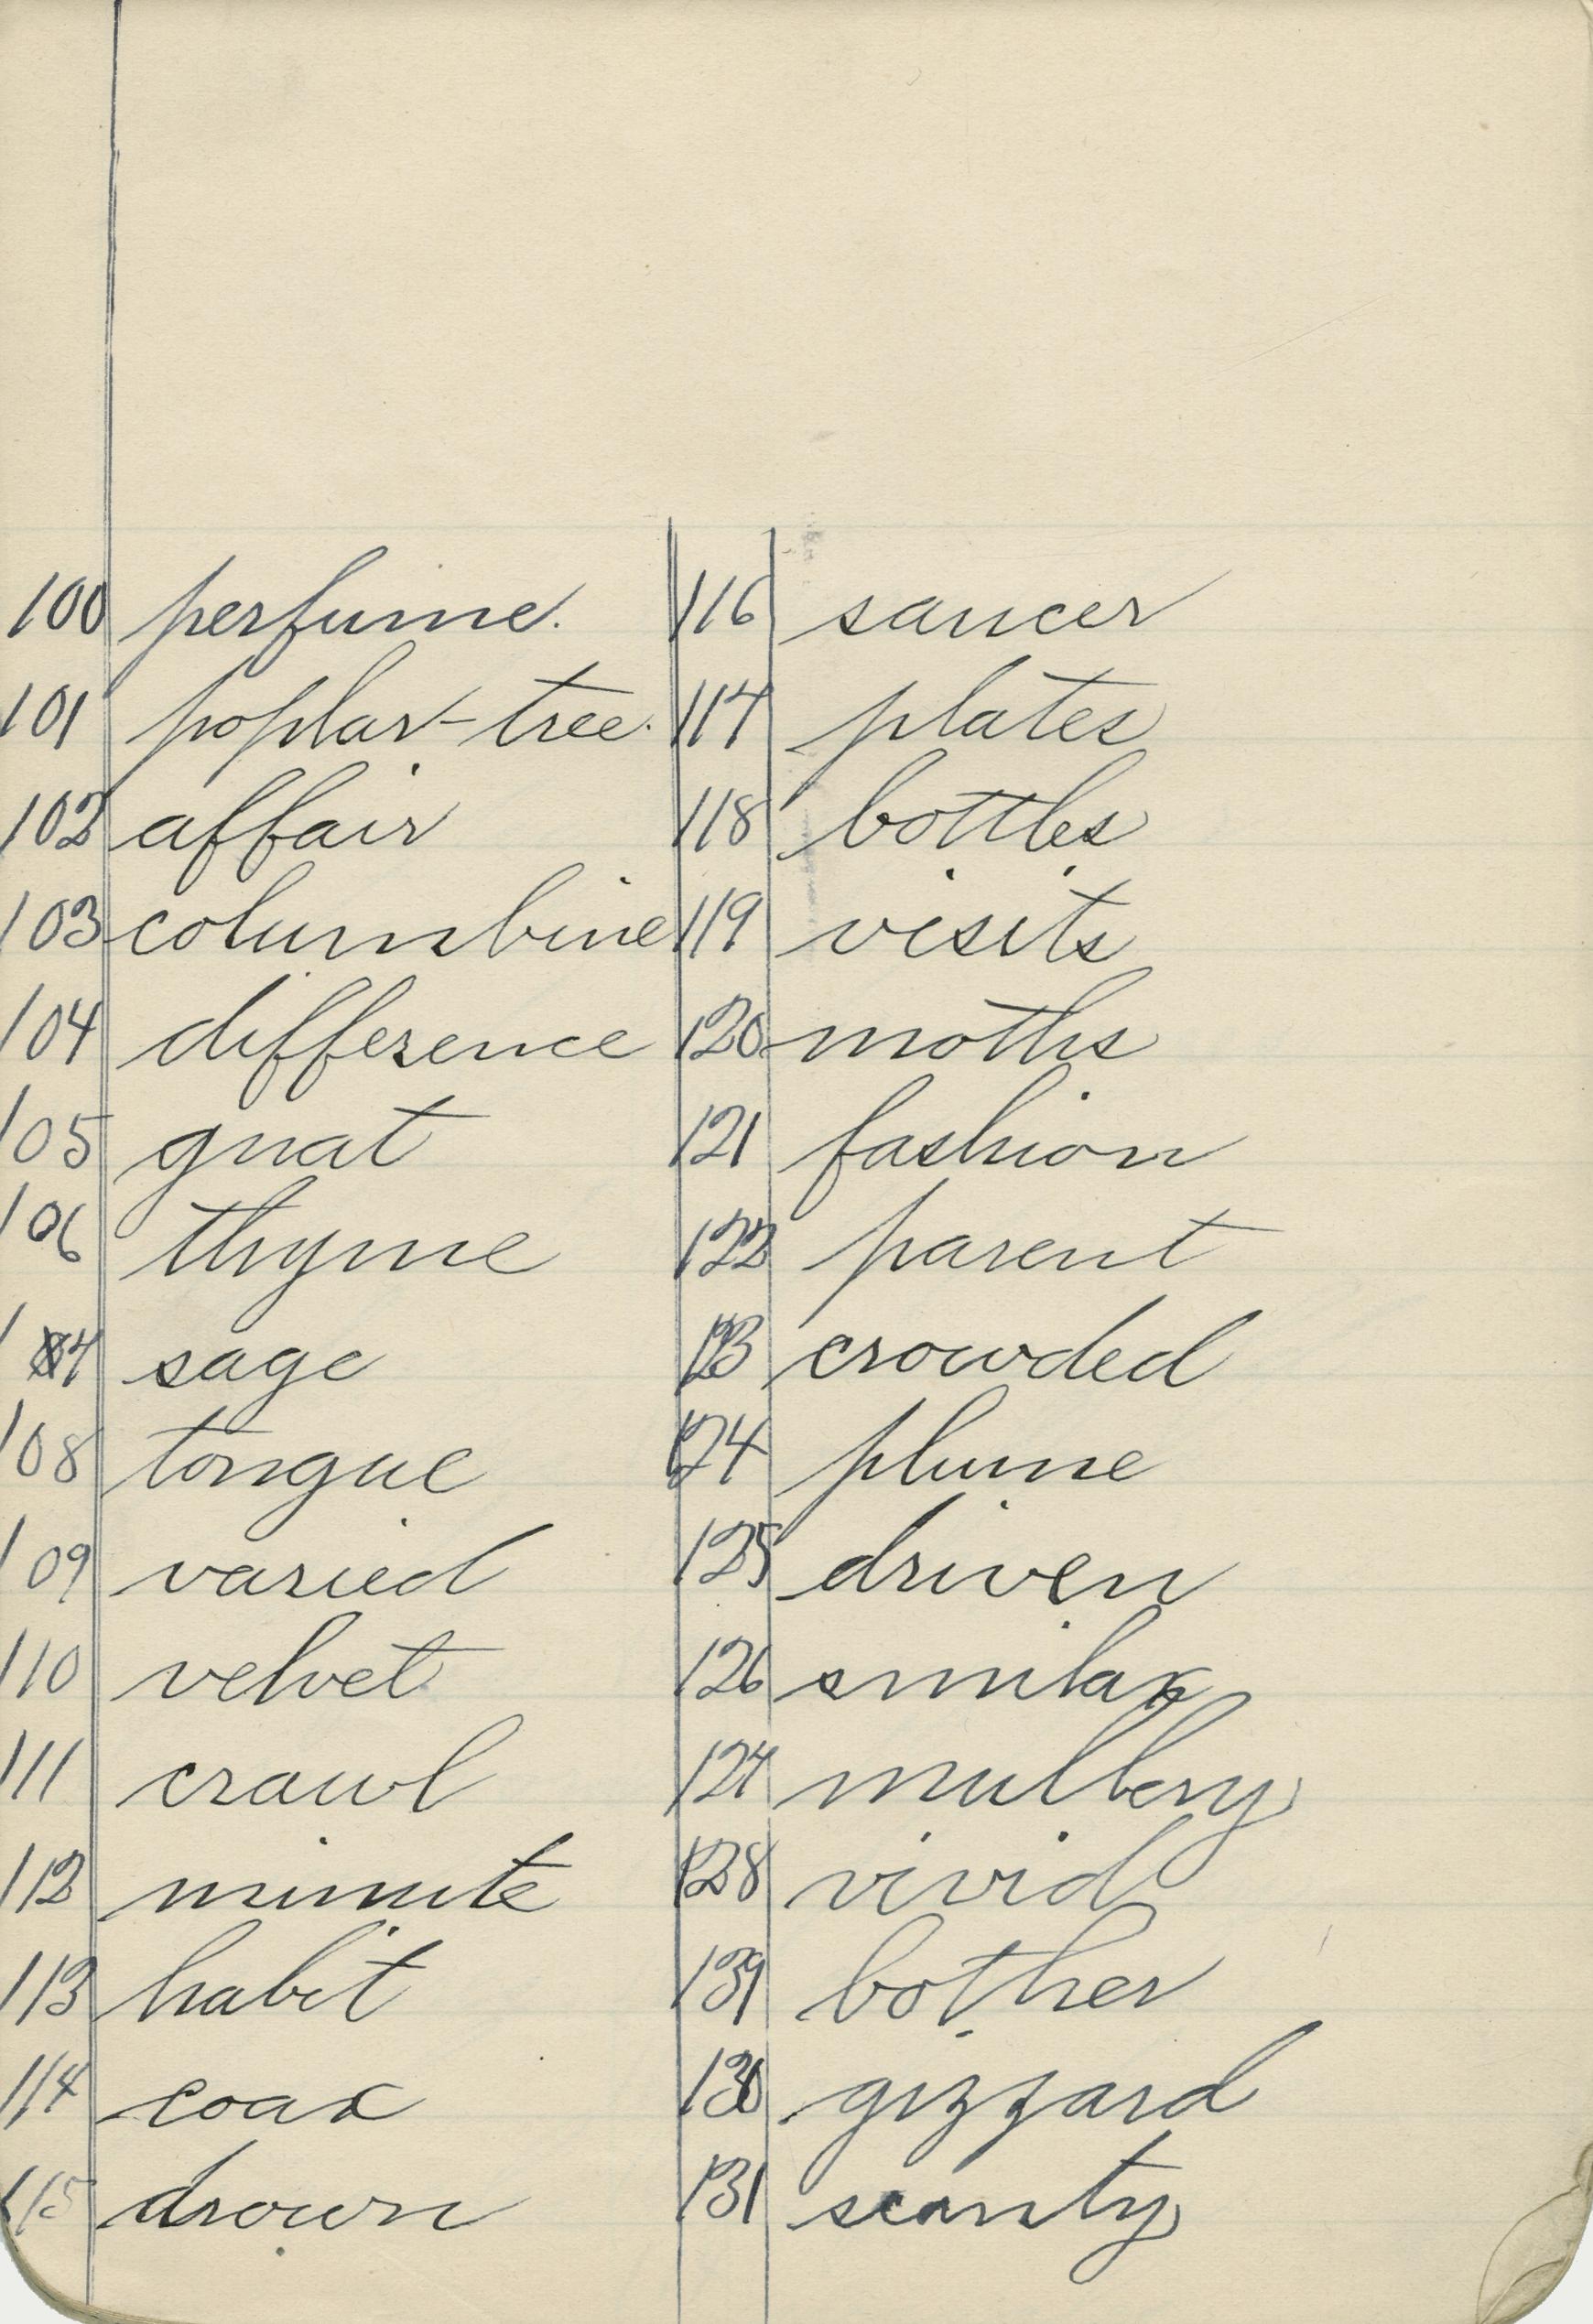 100 perfume.
101 poplar-tree.
102 affair
103 columbine
104 difference
105 gnat
106 thyme
107 sage
108 tongue
109 varied
110 velvet
111 crawl
112 minute
113 habit
114 coax
115 drown
116 saucer
117 plates
118 bottles
119 visits
120 moths
121 fashion
122 parent
123 crowded
124 plume
125 driven
126 smilax
127 mulbery
128 vivid
129 bother
130 gizzard
131 scanty